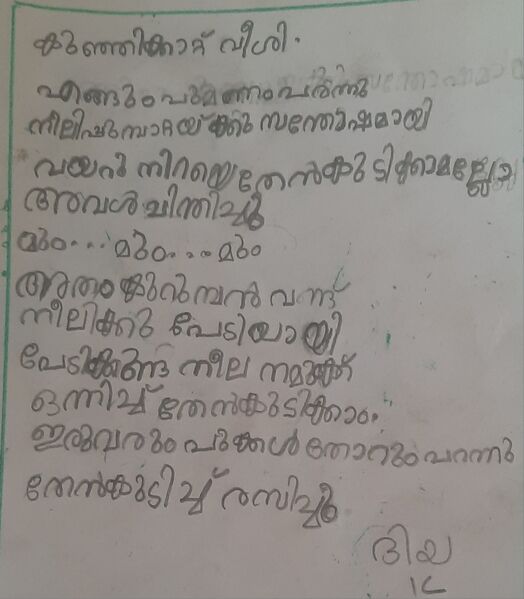 കുഞ്ഞിക്കാറ്റ് വീശി.
എങ്ങും പൂമണം പരന്നു
നീലിപ്പൂമ്പാറ്റയ്ക്കു സന്തോഷമായി
വയറു നിറയെ തേൻകുടിക്കാമല്ലോ
അവൾ ചിന്തിച്ചു
മും... മും... മും
അതാ കുറുമ്പൻ വണ്ട്
നീലിക്കു പേടിയായി
പേടിക്കണ്ട നീല നമുക്ക്
ഒന്നിച്ച് തേൻകുടിക്കാം.
ഇരുവരും പൂക്കൾ തോറും പറന്നു
തേൻകുടിച്ച് രസിച്ചു
ദിയ
1C